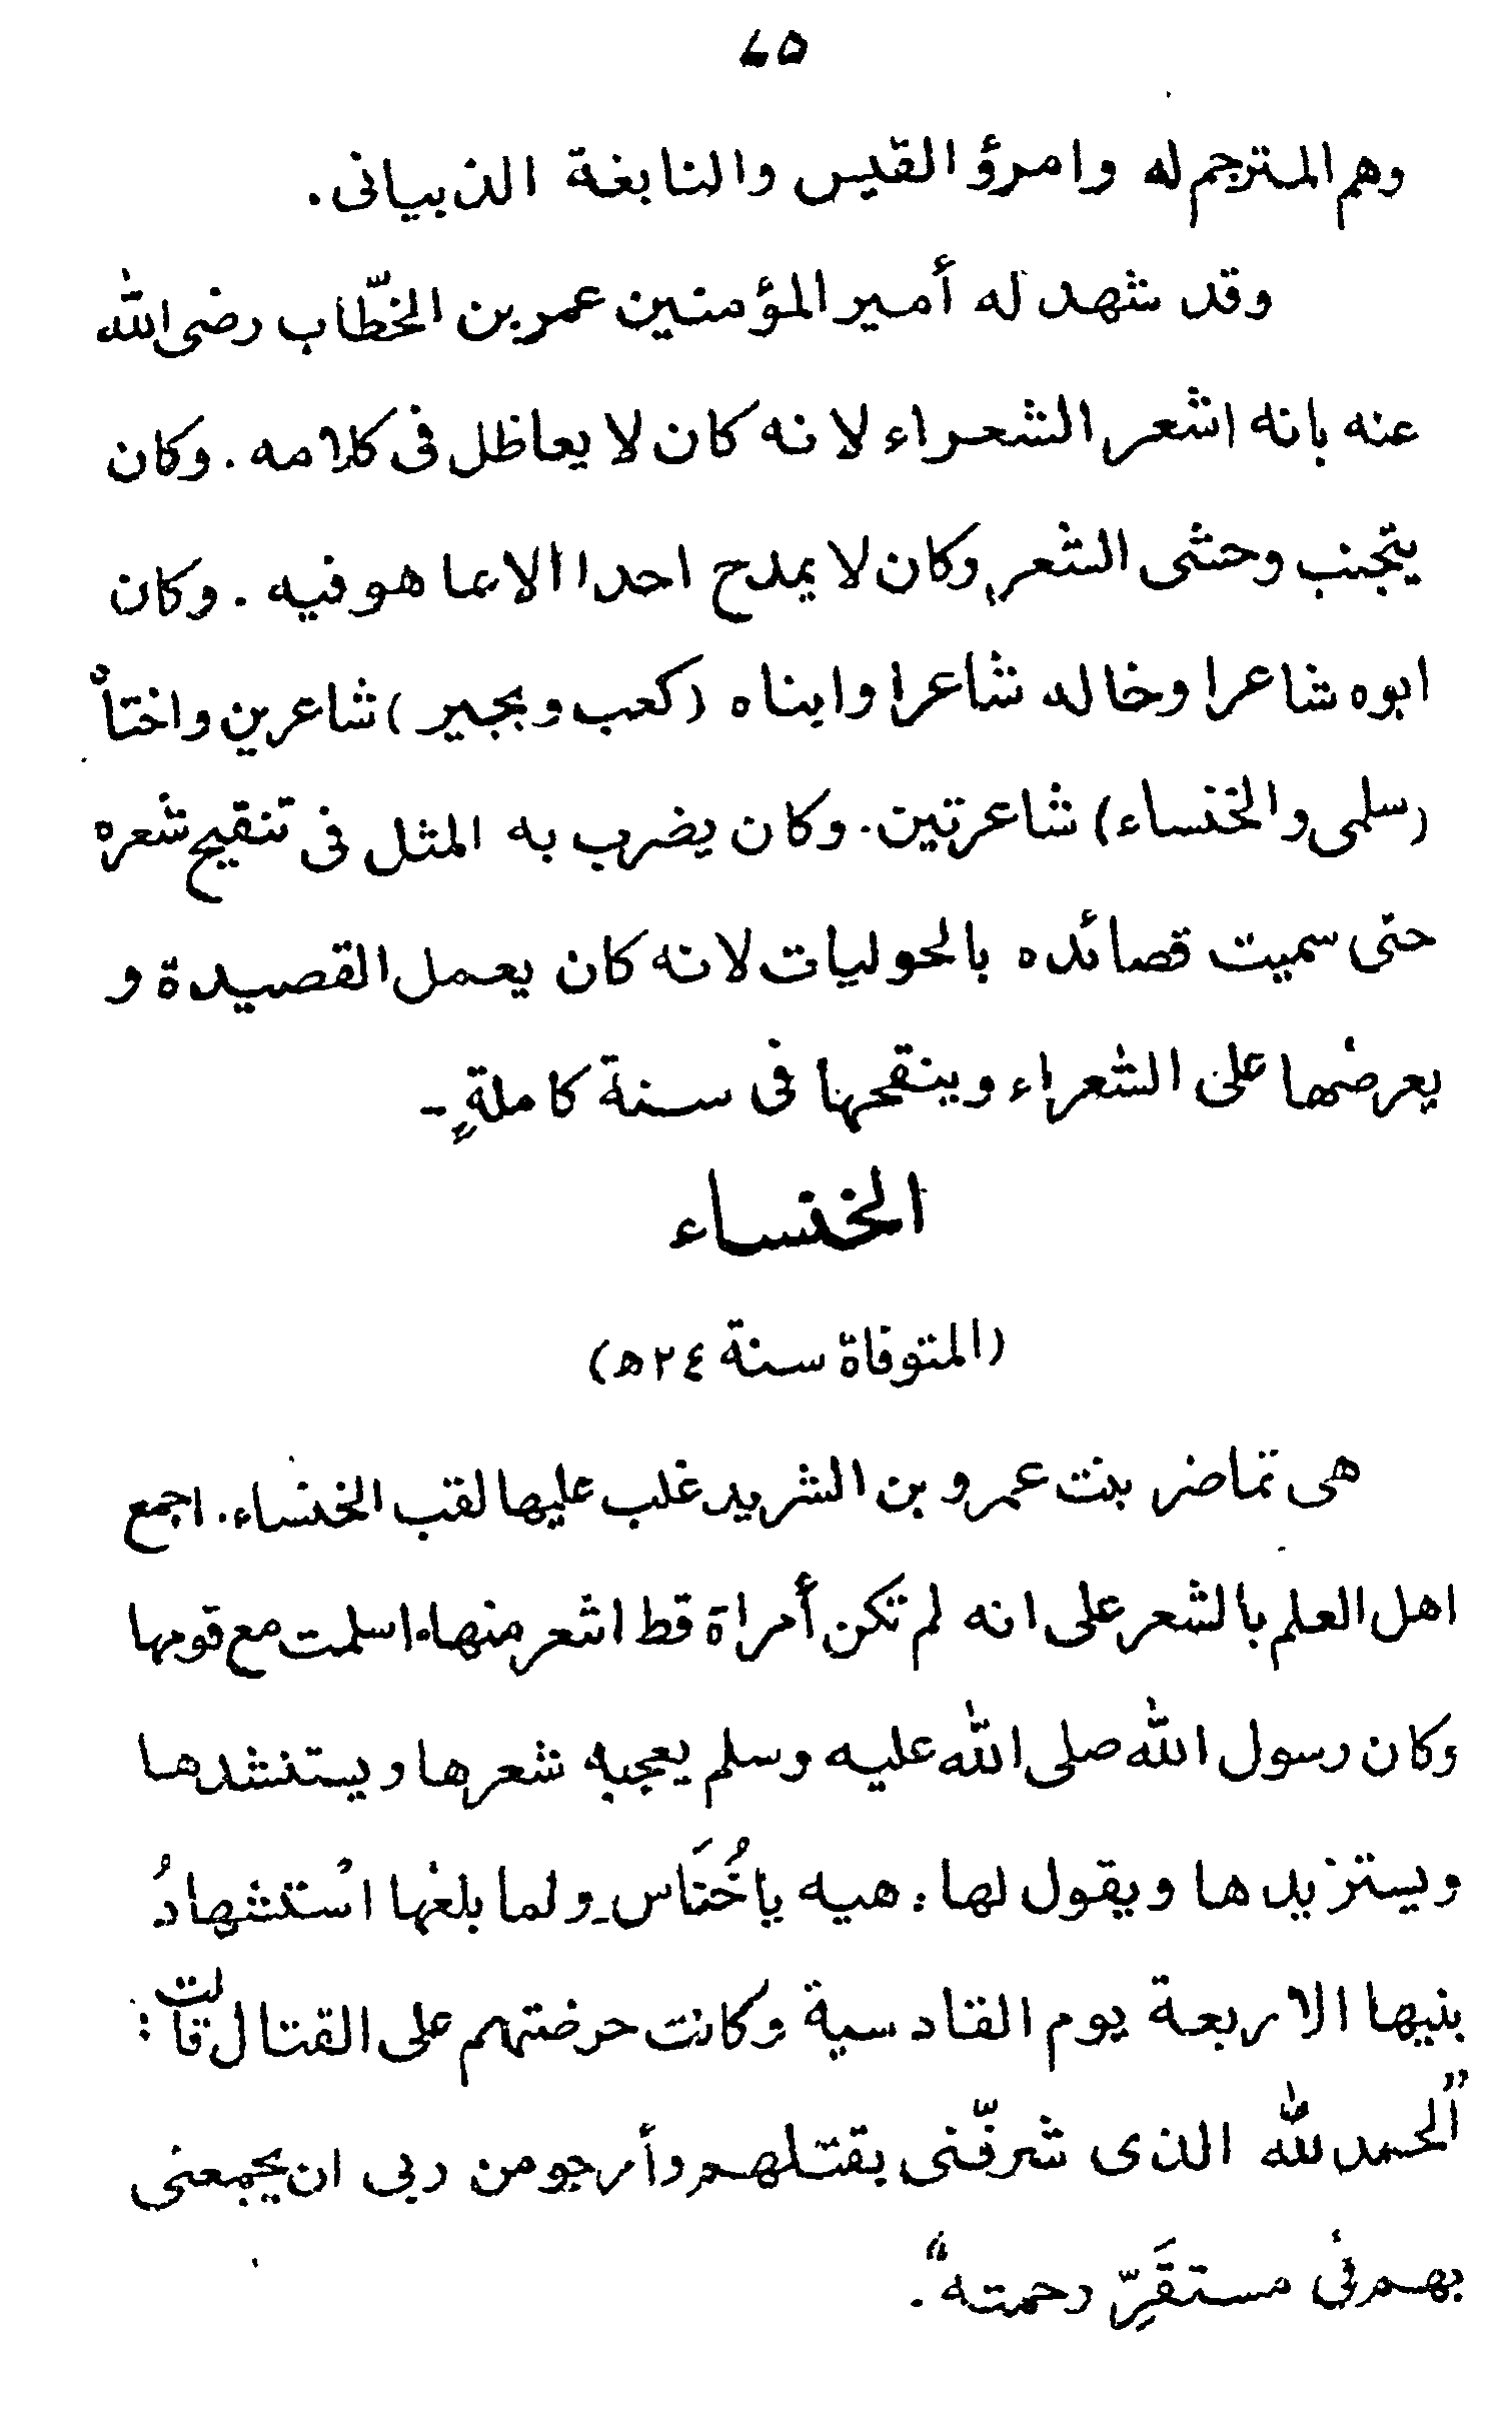 ٤٥
وهم المترجم له وامرؤ القيس والنابغة الذبيانى.
وقد شهد له أمير المؤمنين عمر بن الخطّاب رضى الله
عنه بانه اشعر الشعراء لانه كان لا يعاظل فى كلامه. وكان
يتجنب وحشى الشعر وكان لا يمدح احدا الا عما هو فيه. وكان
ابوه شاعرا وخاله شاعرا وابناه (كعب وبجير) شاعرين واختاه
(سلمى والخنساء) شاعرتين. وكان يضرب به المثل فى تنقيح شعره
حتى سميت قصائده بالحوليات لانه كان يعمل القصيدة و
يعرضها على الشعراء وينقحها فى سنة كاملةٍ -
الخنساء
(المتوفاة سنة ٢٤ھ)
هى تماضر بنت عمرو بن الشريد غلب عليها لقب الخنساء. اجمع
اهل العلم بالشعر على انه لم تكن أمراة قط اشعر منها. اسلمت مع قومها
وكان رسول الله صلى الله عليه وسلم يعجبه شعرها ويستنشدها
ويستزيدها ويقول لها: هيه ياخُنَاس ولما بلغها استشهادُ
بنيها الاربعة يوم القادسية وكانت حرضتهم على القتال قالت:
"الحمد لله الذى شرفّنى بقتلهم وأرجو من ربى ان يجمعنى
بهم فى مستقَرِّ رحمته".